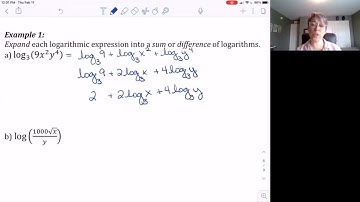 12:01 PM Thu Feb 11
Example 1:
Expand each logarithmic expression into a sum or difference of logarithms.
a) log₃(9x²y⁴) = log₃9 + log₃x² + log₃y⁴
log₃9 + 2log₃x + 4log₃y
2 + 2log₃x + 4log₃y
b) log(1000√x/y)